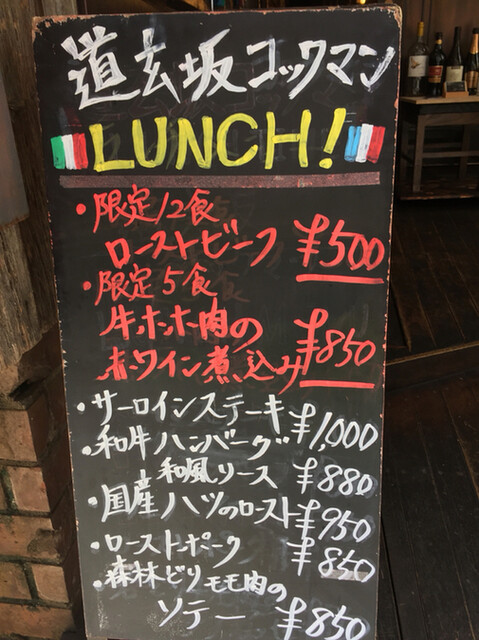 道玄坂コックマン
LUNCH!
・限定12食
ローストビーフ ¥500
・限定5食
牛ホホ肉の
赤ワイン煮込み ¥850
・サーロインステーキ ¥1,000
・和牛ハンバーグ
和風ソース ¥880
・国産ハツのロースト ¥950
・ローストポーク ¥850
・森林どりモモ肉の
ソテー ¥850